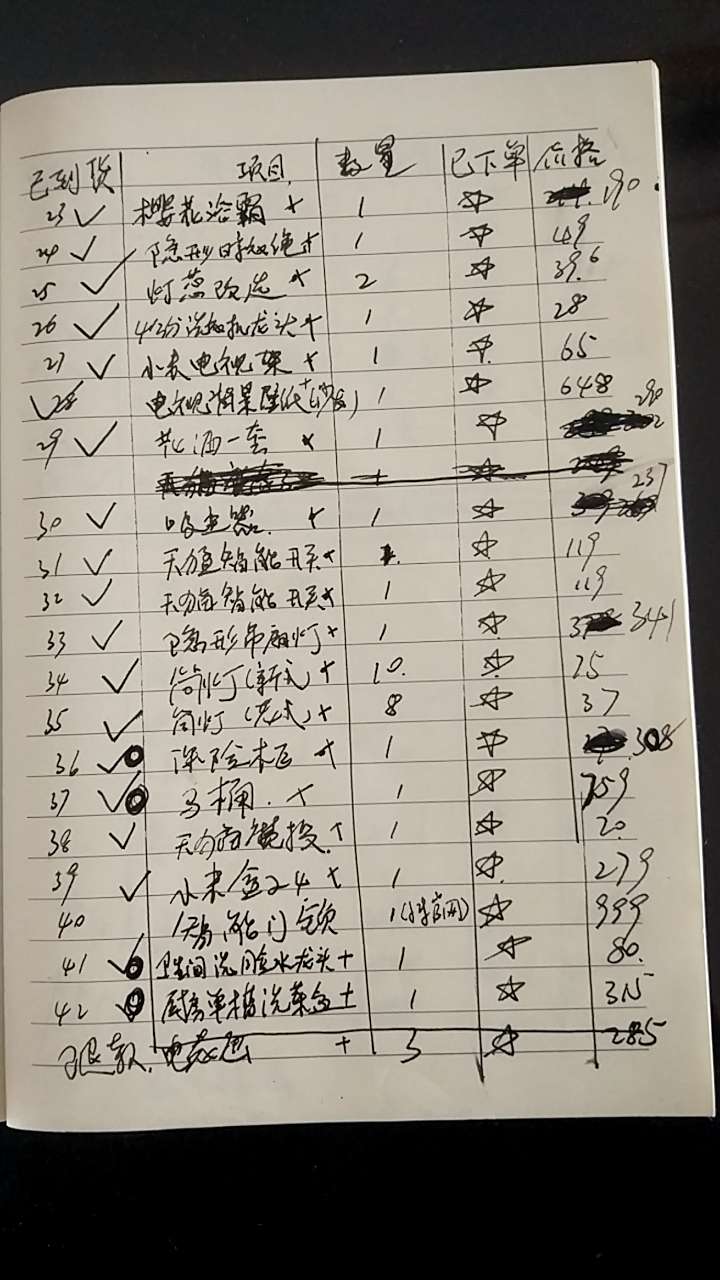 已到货 项目 数量 已下单 价格
23 ✓ 樱花浴霸 + 1 ☆ 190
24 ✓ 隐形晾衣绳 + 1 ☆ 49
25 ✓ 灯 改造 + 2 ☆ 39.6
26 ✓ 4分 洗衣机龙头 + 1 ☆ 28
27 ✓ 小米电视架 + 1 ☆ 65
✓ 28 电视背景壁纸+(沙发) 1 ☆ 648
29 ✓ 花洒一套 + 1 ☆ 290
30 ✓ 吸尘器 + 1 ☆ 237
31 ✓ 天猫 智能开关 + 1 ☆ 119
32 ✓ 天猫 智能开关 + 1 ☆ 119
33 ✓ 隐形吊扇灯 + 1 ☆ 341
34 ✓ 筒灯(新式) + 10 ☆ 25
35 ✓ 筒灯(老式) + 8 ☆ 37
36 ✓ 保险柜 + 1 ☆ 308
37 ✓ 马桶 + 1 ☆ 759
38 ✓ 1 ☆ 20
39 ✓ 小米盒子4 + 1 ☆ 279
40 智能门锁 1(小米官网) ☆ 999
41 ✓ 卫生间洗脸盆水龙头 + 1 ☆ 80
42 ✓ 厨房单槽洗菜盆 + 1 ☆ 315
已退款 + 3 ☆ 285